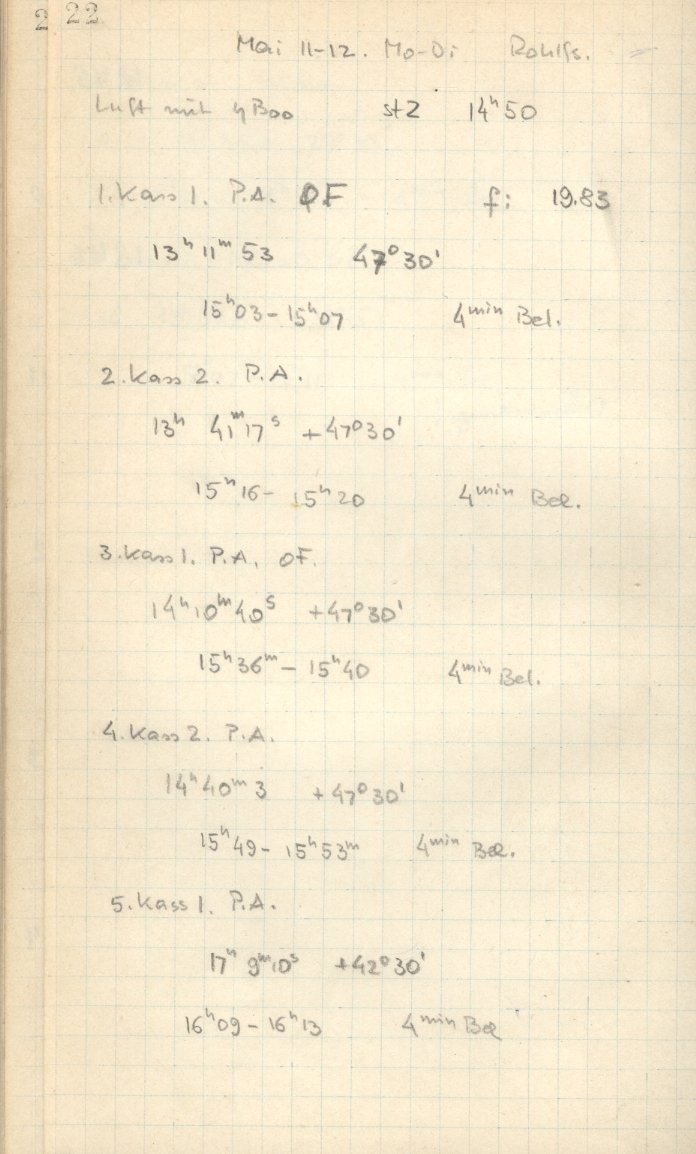 2 22
Mai 11-12. Mo-Di Rohlfs.
Luft mit η Boo stZ 14ʰ50
1. Kass 1. P.A. OF f: 19.83
13ʰ 11ᵐ 53 47⁰30'
15ʰ03 - 15ʰ07 4ᵐⁱⁿ Bel.
2. Kass 2. P.A.
13ʰ 41ᵐ17ˢ +47⁰30'
15ʰ16 - 15ʰ20 4ᵐⁱⁿ Bel.
3. Kass 1. P.A. OF.
14ʰ10ᵐ40ˢ +47⁰30'
15ʰ36ᵐ - 15ʰ40 4ᵐⁱⁿ Bel.
4. Kass 2. P.A.
14ʰ40ᵐ3 +47⁰30'
15ʰ49 - 15ʰ53ᵐ 4ᵐⁱⁿ Bel.
5. Kass 1. P.A.
17ʰ 9ᵐ10ˢ +42⁰30'
16ʰ09 - 16ʰ13 4ᵐⁱⁿ Bel